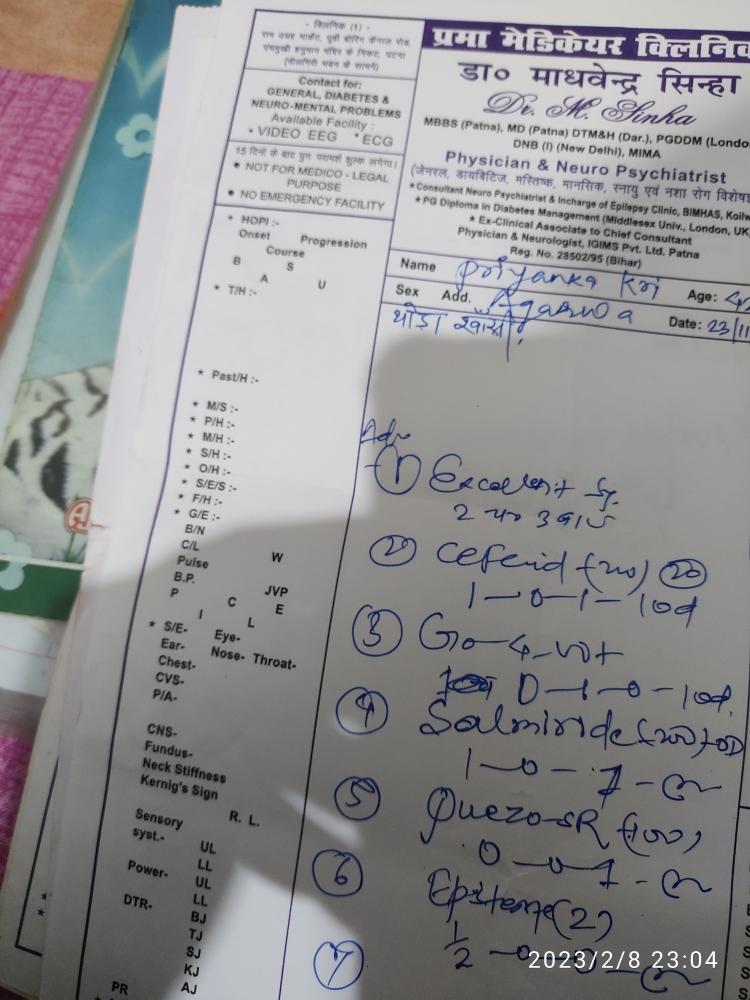 - क्लिनिक (1) -
राम उग्रह मार्केट, पूर्वी बोरिंग कैनाल रोड,
पंचमुखी हनुमान मंदिर के निकट, पटना
(नीलगिरी भवन के सामने)
Contact for:
GENERAL, DIABETES &
NEURO-MENTAL PROBLEMS
Available Facility :
* VIDEO EEG * ECG
15 दिनों के बाद पुनः परामर्श शुल्क लगेगा।
* NOT FOR MEDICO - LEGAL
PURPOSE
* NO EMERGENCY FACILITY
प्रभा मेडिकेयर क्लिनिक
डा० माधवेन्द्र सिन्हा
Dr. M. Sinha
MBBS (Patna), MD (Patna) DTM&H (Dar.), PGDDM (Londo
DNB (I) (New Delhi), MIMA
Physician & Neuro Psychiatrist
(जेनरल, डायबिटिज, मस्तिष्क, मानसिक, स्नायु एवं नशा रोग विशेषज्ञ
*Consultant Neuro Psychiatrist & Incharge of Epilepsy Clinic, BIMHAS, Koilw
*PG Diploma in Diabetes Management (Middlesex Univ., London, UK
* Ex-Clinical Associate to Chief Consultant
Physician & Neurologist, IGIMS Pvt. Ltd. Patna
Reg. No. 28502/95 (Bihar)
Name Priyanka Kri Age:
Sex Add. Date: 23/11
थोड़ा खाँसी
* HOPI :-
Onset Progression
Course
B S
A U
* T/H :-
* Past/H :-
* M/S :-
* P/H :-
* M/H :-
* S/H :-
* O/H :-
* S/E/S :-
* F/H :-
* G/E :-
B/N
C/L W
Pulse
B.P. JVP
P C E
I L
* S/E- Eye-
Ear- Nose- Throat-
Chest-
CVS-
P/A-
CNS-
Fundus-
Neck Stiffness
Kernig's Sign
R. L.
Sensory
syst.- UL
LL
Power- UL
LL
DTR- BJ
TJ
SJ
KJ
PR AJ
Adv
① Excellent Sy.
2 चम्मच 3 बार
② Cefend (200) 20
1-0-1-10d
③ Go-4-Vit
0-1-0-10d
④ (200) OD
1-0-1-
⑤ (100)
0-0-1-
⑥ (2)
½-0-
⑦
2023/2/8 23:04